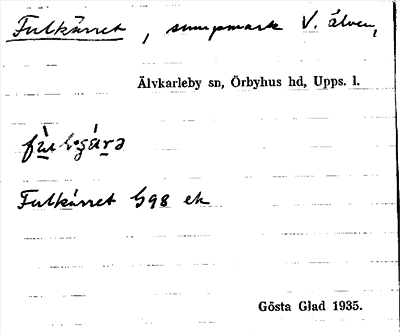 Fulkärret, sumpmark V. älven,
Älvkarleby sn, Örbyhus hd, Upps. l.
Fulkärret G98 ek
Gösta Glad 1935.